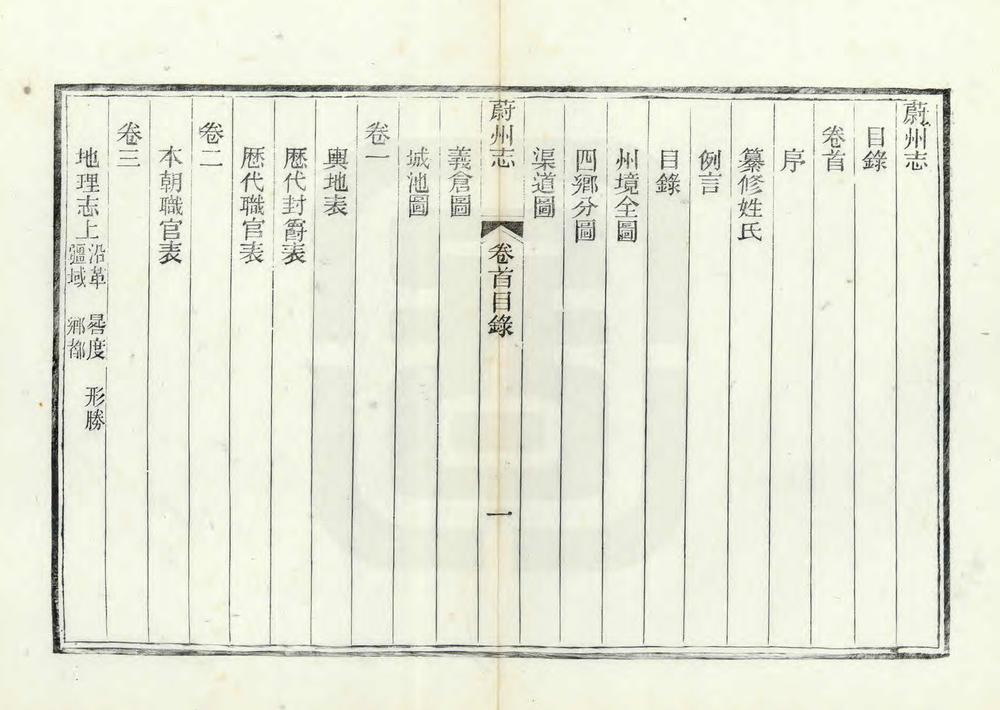 蔚州志
目錄
卷首
序
纂修姓氏
例言
目錄
州境全圖
四鄉分圖
渠道圖
蔚州志
卷首目錄
一
義倉圖
城池圖
卷一
輿地表
歷代封爵表
歷代職官表
卷二
本朝職官表
卷三
地理志上
沿革 晷度 形勝
疆域 鄉都